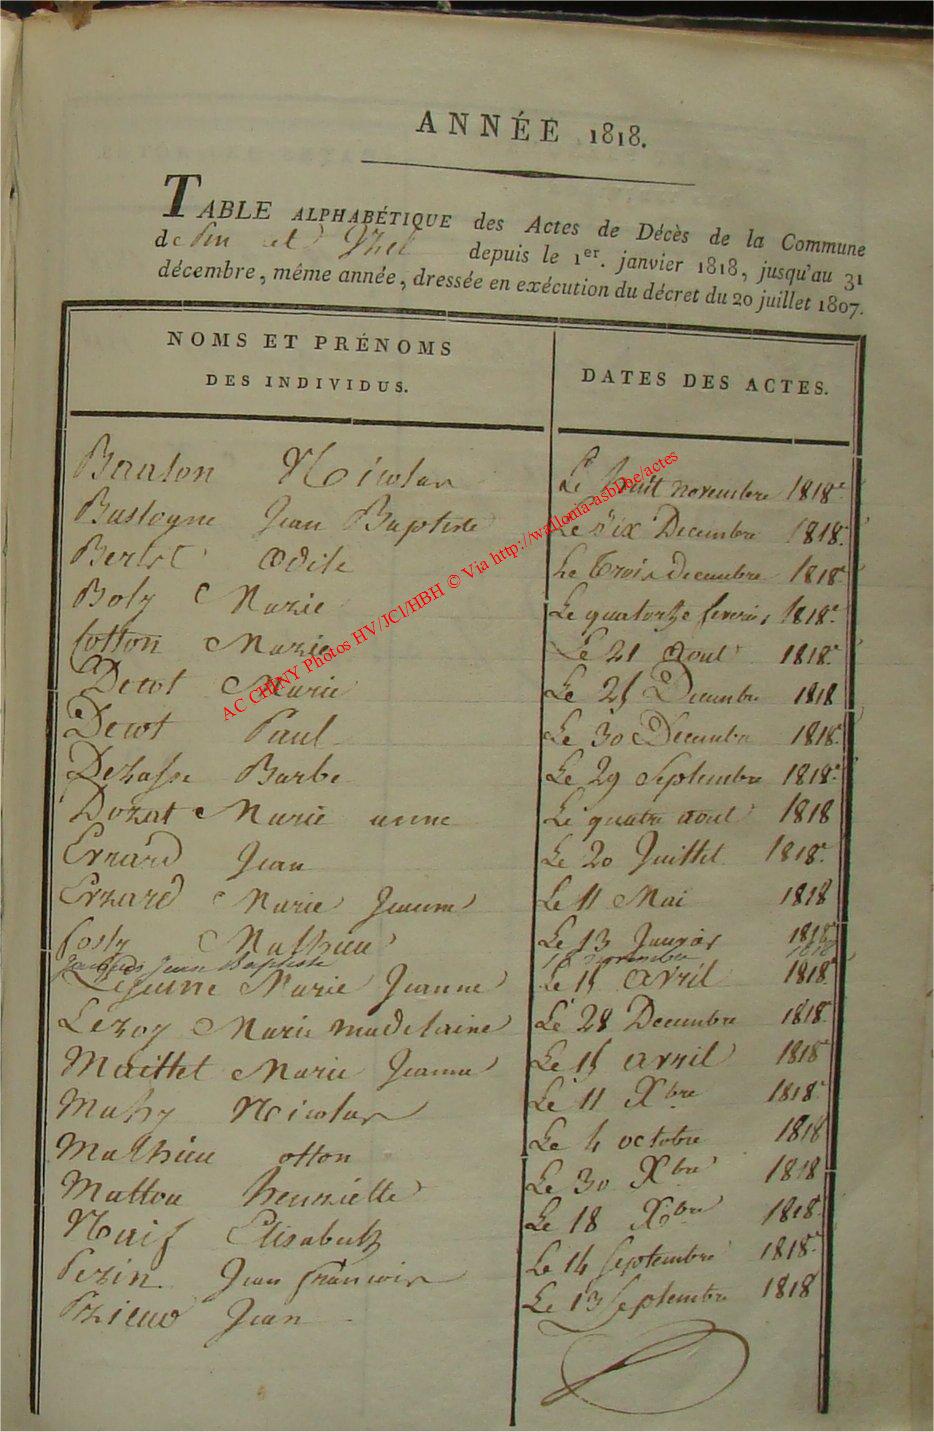 ANNÉE 1818.
TABLE ALPHABÉTIQUE des Actes de Décès de la Commune
de Pin et Izel depuis le 1er. janvier 1818, jusqu'au 31
décembre, même année, dressée en exécution du décret du 20 juillet 1807.
NOMS ET PRÉNOMS
DES INDIVIDUS.
DATES DES ACTES.
Baulon Nicolas Le huit novembre 1818
Bastogne Jean Baptiste Le Six Decembre 1818.
Odile Le trois decembre 1818
Boly Marie Le quatorze fevrier 1818
Cotton Marie Le 21 aout 1818
Decot Marie Le 25 Decembre 1818
Decot Paul Le 30 Decembre 1818
Barbe Le 29 Septembre 1818
Dozat Marie anne Le quatre aout 1818
Errard Jean Le 20 Juillet 1818
Errard Marie Jeanne Le 11 Mai 1818
Mathieu Le 13 Janvier 1818
Jacques Jean Baptiste 18 novembre 1818
Lejeune Marie Jeanne Le 15 avril 1818
Leroy Marie madelaine Le 28 Decembre 1818
Maittet Marie Jeanne Le 15 avril 1818
Mahy Nicolas Le 11 Xbre 1818
Mathieu otton Le 4 octobre 1818
Matton henriette Le 30 Xbre 1818
Naif Elisabeth Le 18 Xbre 1818
Perin Jean francois Le 14 Septembre 1818
Jean Le 13 Septembre 1818
AC CHINY Photos HV/JCl/HBH © Via http://wallonia-asbl.be/actes